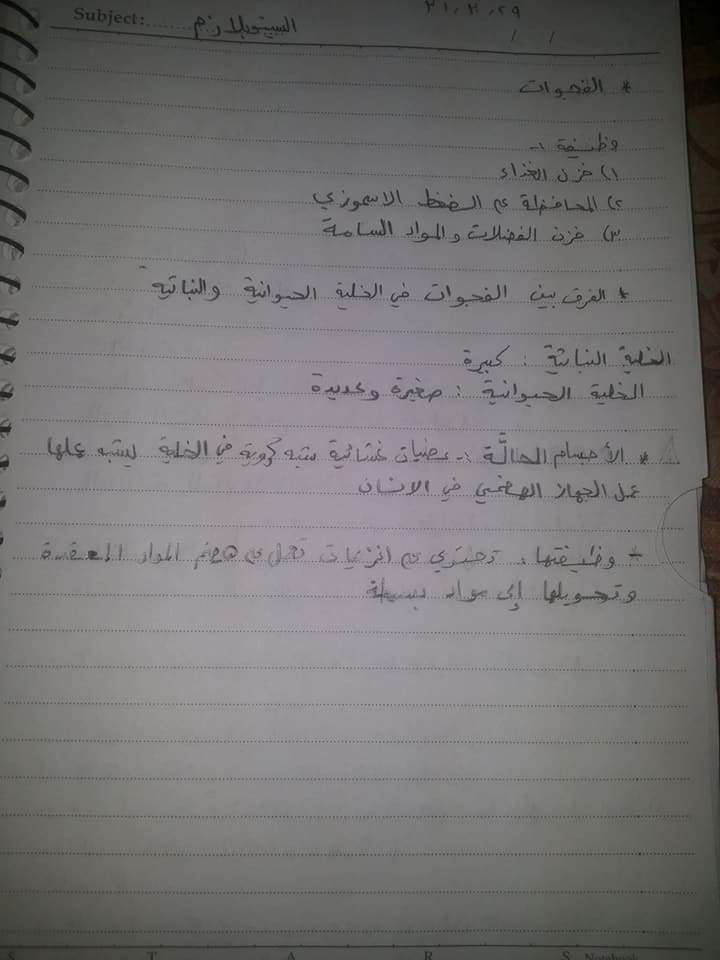 Subject: السيتوبلازم
* الفجوات
وظيفة :-
١) خزن الغذاء
٢) المحافظة على الضغط الاسموزي
٣) خزن الفضلات والمواد السامة
* الفرق بين الفجوات في الخلية الحيوانية والنباتية
الخلية النباتية : كبيرة
الخلية الحيوانية : صغيرة وعديدة
* الأجسام الحالَّة :- عضيات غشائية شبه كروية في الخلية يشبه عملها
عمل الجهاز الهضمي في الانسان
* وظيفتها : تحتوي على انزيمات تعمل على هضم المواد المعقدة
وتحويلها إلى مواد بسيطة
S T A R S Notebook